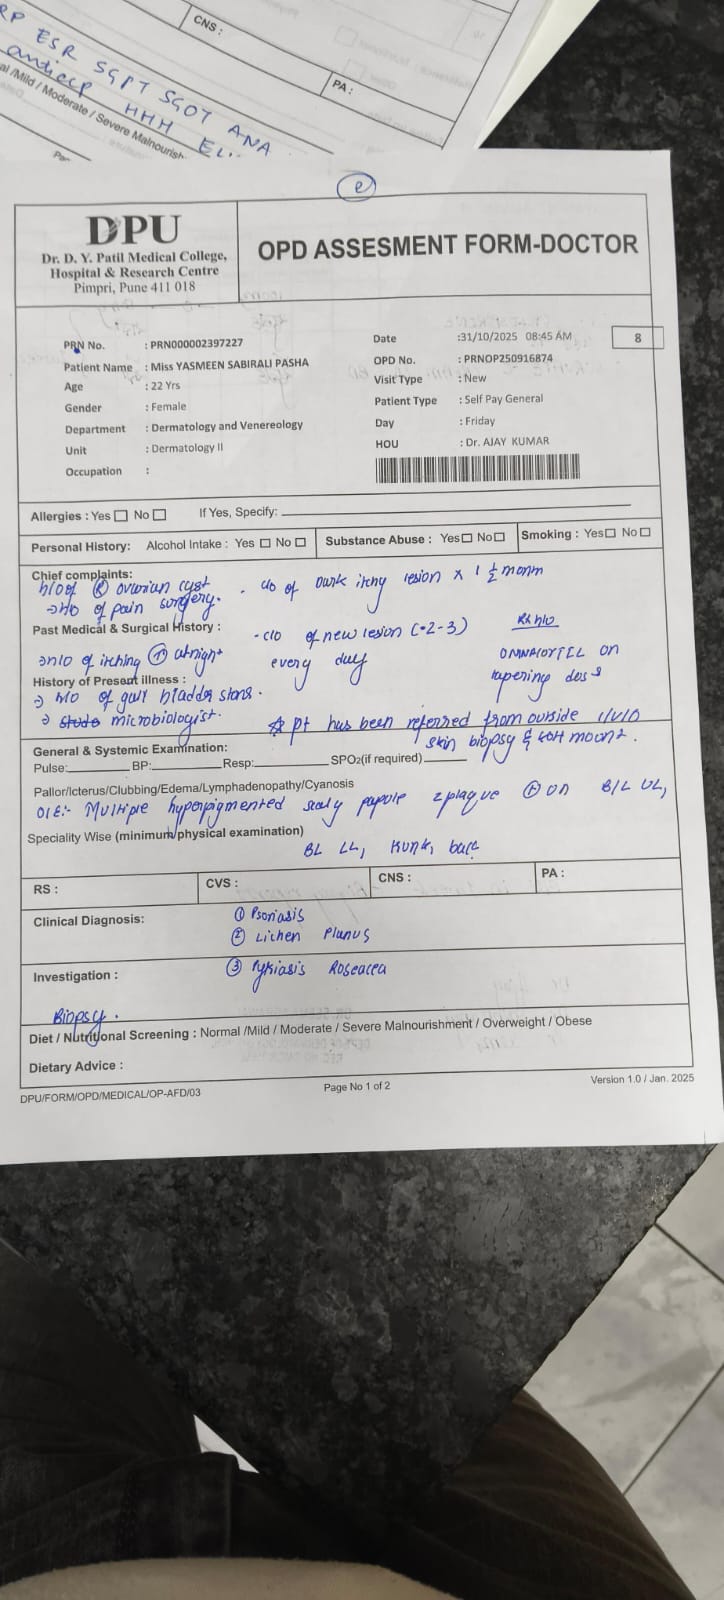 CNS :
PA :
RP ESR SGPT SGOT ANA
HHH
al /Mild / Moderate / Severe Malnourish
DPU
Dr. D. Y. Patil Medical College,
Hospital & Research Centre
Pimpri, Pune 411 018
OPD ASSESMENT FORM-DOCTOR
PRN No. : PRN000002397227
Date :31/10/2025 08:45 AM
8
Patient Name : Miss YASMEEN SABIRALI PASHA
OPD No. : PRNOP250916874
Age : 22 Yrs
Visit Type : New
Gender : Female
Patient Type : Self Pay General
Department : Dermatology and Venereology
Day : Friday
Unit : Dermatology II
HOU : Dr. AJAY KUMAR
Occupation :
Allergies : Yes No If Yes, Specify:
Personal History: Alcohol Intake : Yes No Substance Abuse : Yes No Smoking : Yes No
Chief complaints:
h/o of R ovarian cyst
- c/o of Dark itchy lesion x 1 ½ month
→ H/o of pain surgery.
Past Medical & Surgical History :
- c/o of new lesion (2-3)
every day
Rx h/o
OMNACORTIL on
tapering dose
h/o of itching ↑ at night
History of Present illness :
→ h/o of gall bladder stons.
→ microbiologist.
pt has been referred from outside i/v/o
skin biopsy & KOH mount.
General & Systemic Examination:
Pulse: BP: Resp: SPO2(if required)
Pallor/Icterus/Clubbing/Edema/Lymphadenopathy/Cyanosis
O/E:- Multiple hyperpigmented scaly papule plaque on B/L UL,
Speciality Wise (minimum physical examination)
BL LL, trunk, back
RS : CVS : CNS : PA :
Clinical Diagnosis:
① Psoriasis
② Lichen Planus
Investigation :
③ Pytiasis Roseacea
Biopsy.
Diet / Nutritional Screening : Normal /Mild / Moderate / Severe Malnourishment / Overweight / Obese
Dietary Advice :
DPU/FORM/OPD/MEDICAL/OP-AFD/03
Page No 1 of 2
Version 1.0 / Jan. 2025